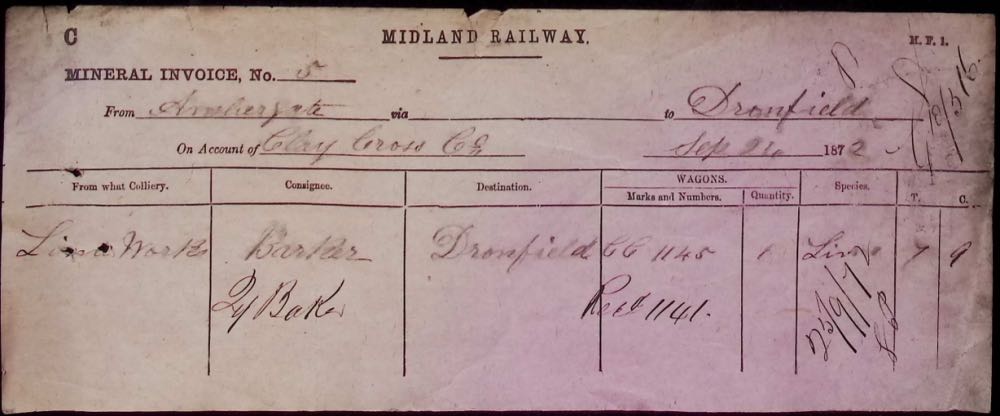 C MIDLAND RAILWAY. M. F. 1.
MINERAL INVOICE, No. 5
8
From Ambergate via to Dronfield
On Account of Clay Cross Co Sep 24 1872
From what Colliery. Consignee. Destination. WAGONS. Species. T. C.
Marks and Numbers. Quantity.
Lime Works Barker Dronfield CC 1145 1 Lime 7 9
Qy Baker Recd 1141.
25/9/72